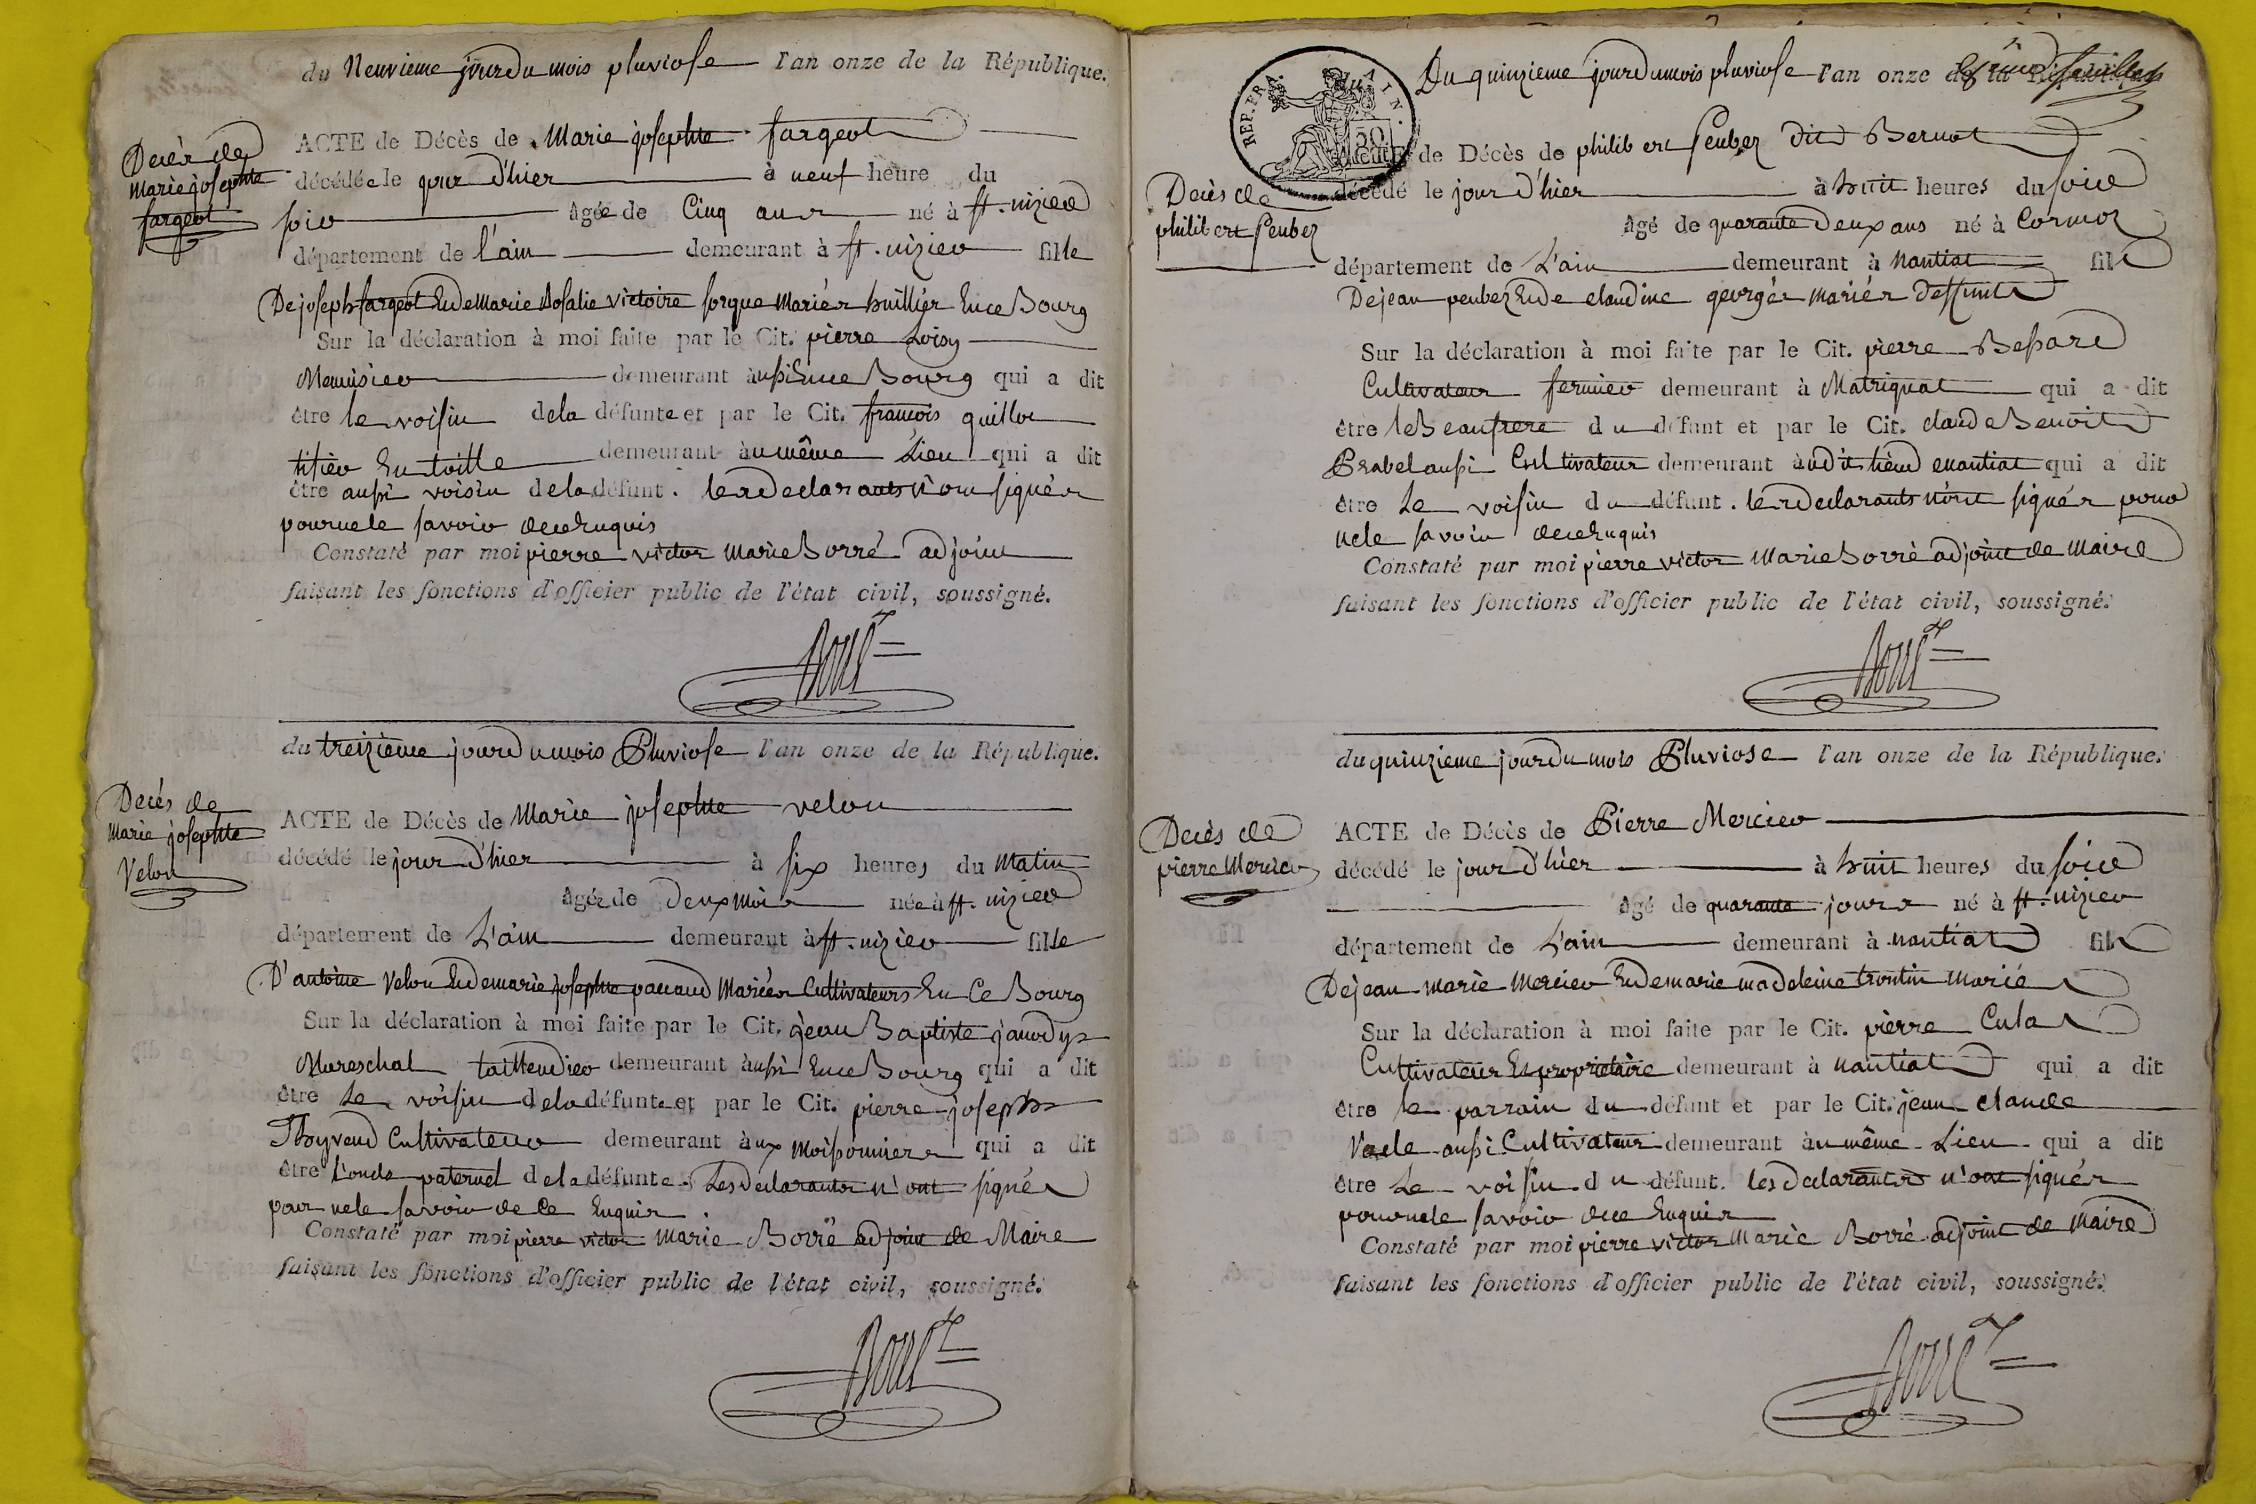 du Neuvieme jour du mois pluviose l'an onze de la République.
Decès de
marie josephte
fargeot
ACTE de Décès de Marie josephte fargeot
décédée le jour d'hier à neuf heure du
soir âgée de Cinq ans né à st. nizier
département de l'ain demeurant à st. nizier fille
De joseph fargeot Et de Marie Rosalie victoire forque Mariés huillier En ce Bourg
Sur la déclaration à moi faite par le Cit. pierre Loisy
Menuisier demeurant aussi En ce Bourg qui a dit
être le voisin de la défunte et par le Cit. françois guillot
tissier En toille demeurant au même Lieu qui a dit
être aussi voisin de la défunt. les declarants n'ont signés
pour ne le savoir de ce Enquis
Constaté par moi pierre victor marie Borré adjoint
faisant les fonctions d'officier public de l'état civil, soussigné.
Borré
du treizième jour du mois Pluviose l'an onze de la République.
Decés de
Marie josephte
Velon
ACTE de Décès de Marie josephte velon
décédé le jour d'hier à six heures du Matin
âgée de deux mois née à st. nizier
département de L'ain demeurant à st. nizier fille
D'antoine Velon Et de marie josephte pacaud Mariés Cultivateurs En Ce Bourg
Sur la déclaration à moi faite par le Cit. jean Baptiste janody
Mareschal taillendier demeurant aussi En ce Bourg qui a dit
être Le voisin de la défunte et par le Cit. pierre joseph
Thoyvend Cultivateur demeurant aux moissonniers qui a dit
être L'oncle paternel de la défunte. Les declarants n'ont signés
pour ne le savoir de Ce Enquis.
Constaté par moi pierre victor Marie Borré adjoint de Maire
faisant les fonctions d'officier public de l'état civil, soussigné.
Borré
REP. FRA. AIN.
Du quinzieme jour du mois pluviose l'an onze de la République feuillet
Decès de
philibert peubez
ACTE de Décès de philibert peubez dit Bernot
décédé le jour d'hier à huit heures du soire
âgé de quarante deux ans né à Cormoz
département de L'ain demeurant à Nantiat fils
De jean peubez Et de claudine georges mariés deffunts
Sur la déclaration à moi faite par le Cit. pierre Bessard
Cultivateur fermier demeurant à Matrignat qui a dit
être le Beaufrere du défunt et par le Cit. claude Benoit
Brabel aussi Cultivateur demeurant audit lieu enantiat qui a dit
être Le voisin du défunt. les declarants n'ont signés pour
ne le savoir de ce Enquis
Constaté par moi pierre victor Marie Borré adjoint de Maire
faisant les fonctions d'officier public de l'état civil, soussigné.
Borré
du quinzieme jour du mois Pluviose l'an onze de la République.
Decès de
pierre Mercier
ACTE de Décès de Pierre Mercier
décédé le jour d'hier à huit heures du soire
âgé de quarante jours né à st. nizier
département de L'ain demeurant à nantiat fils
De jean marie Mercier Et de marie madeleine trontin mariés
Sur la déclaration à moi faite par le Cit. pierre Culas
Cultivateur Et propriétaire demeurant à nantiat qui a dit
être le parrain du défunt et par le Cit. jean claude
Vaele aussi Cultivateur demeurant au même Lieu qui a dit
être Le voisin du défunt. les declarants n'ont signés
pour ne le savoir de ce Enquis
Constaté par moi pierre victor Marie Borré adjoint de Maire
faisant les fonctions d'officier public de l'état civil, soussigné.
Borré